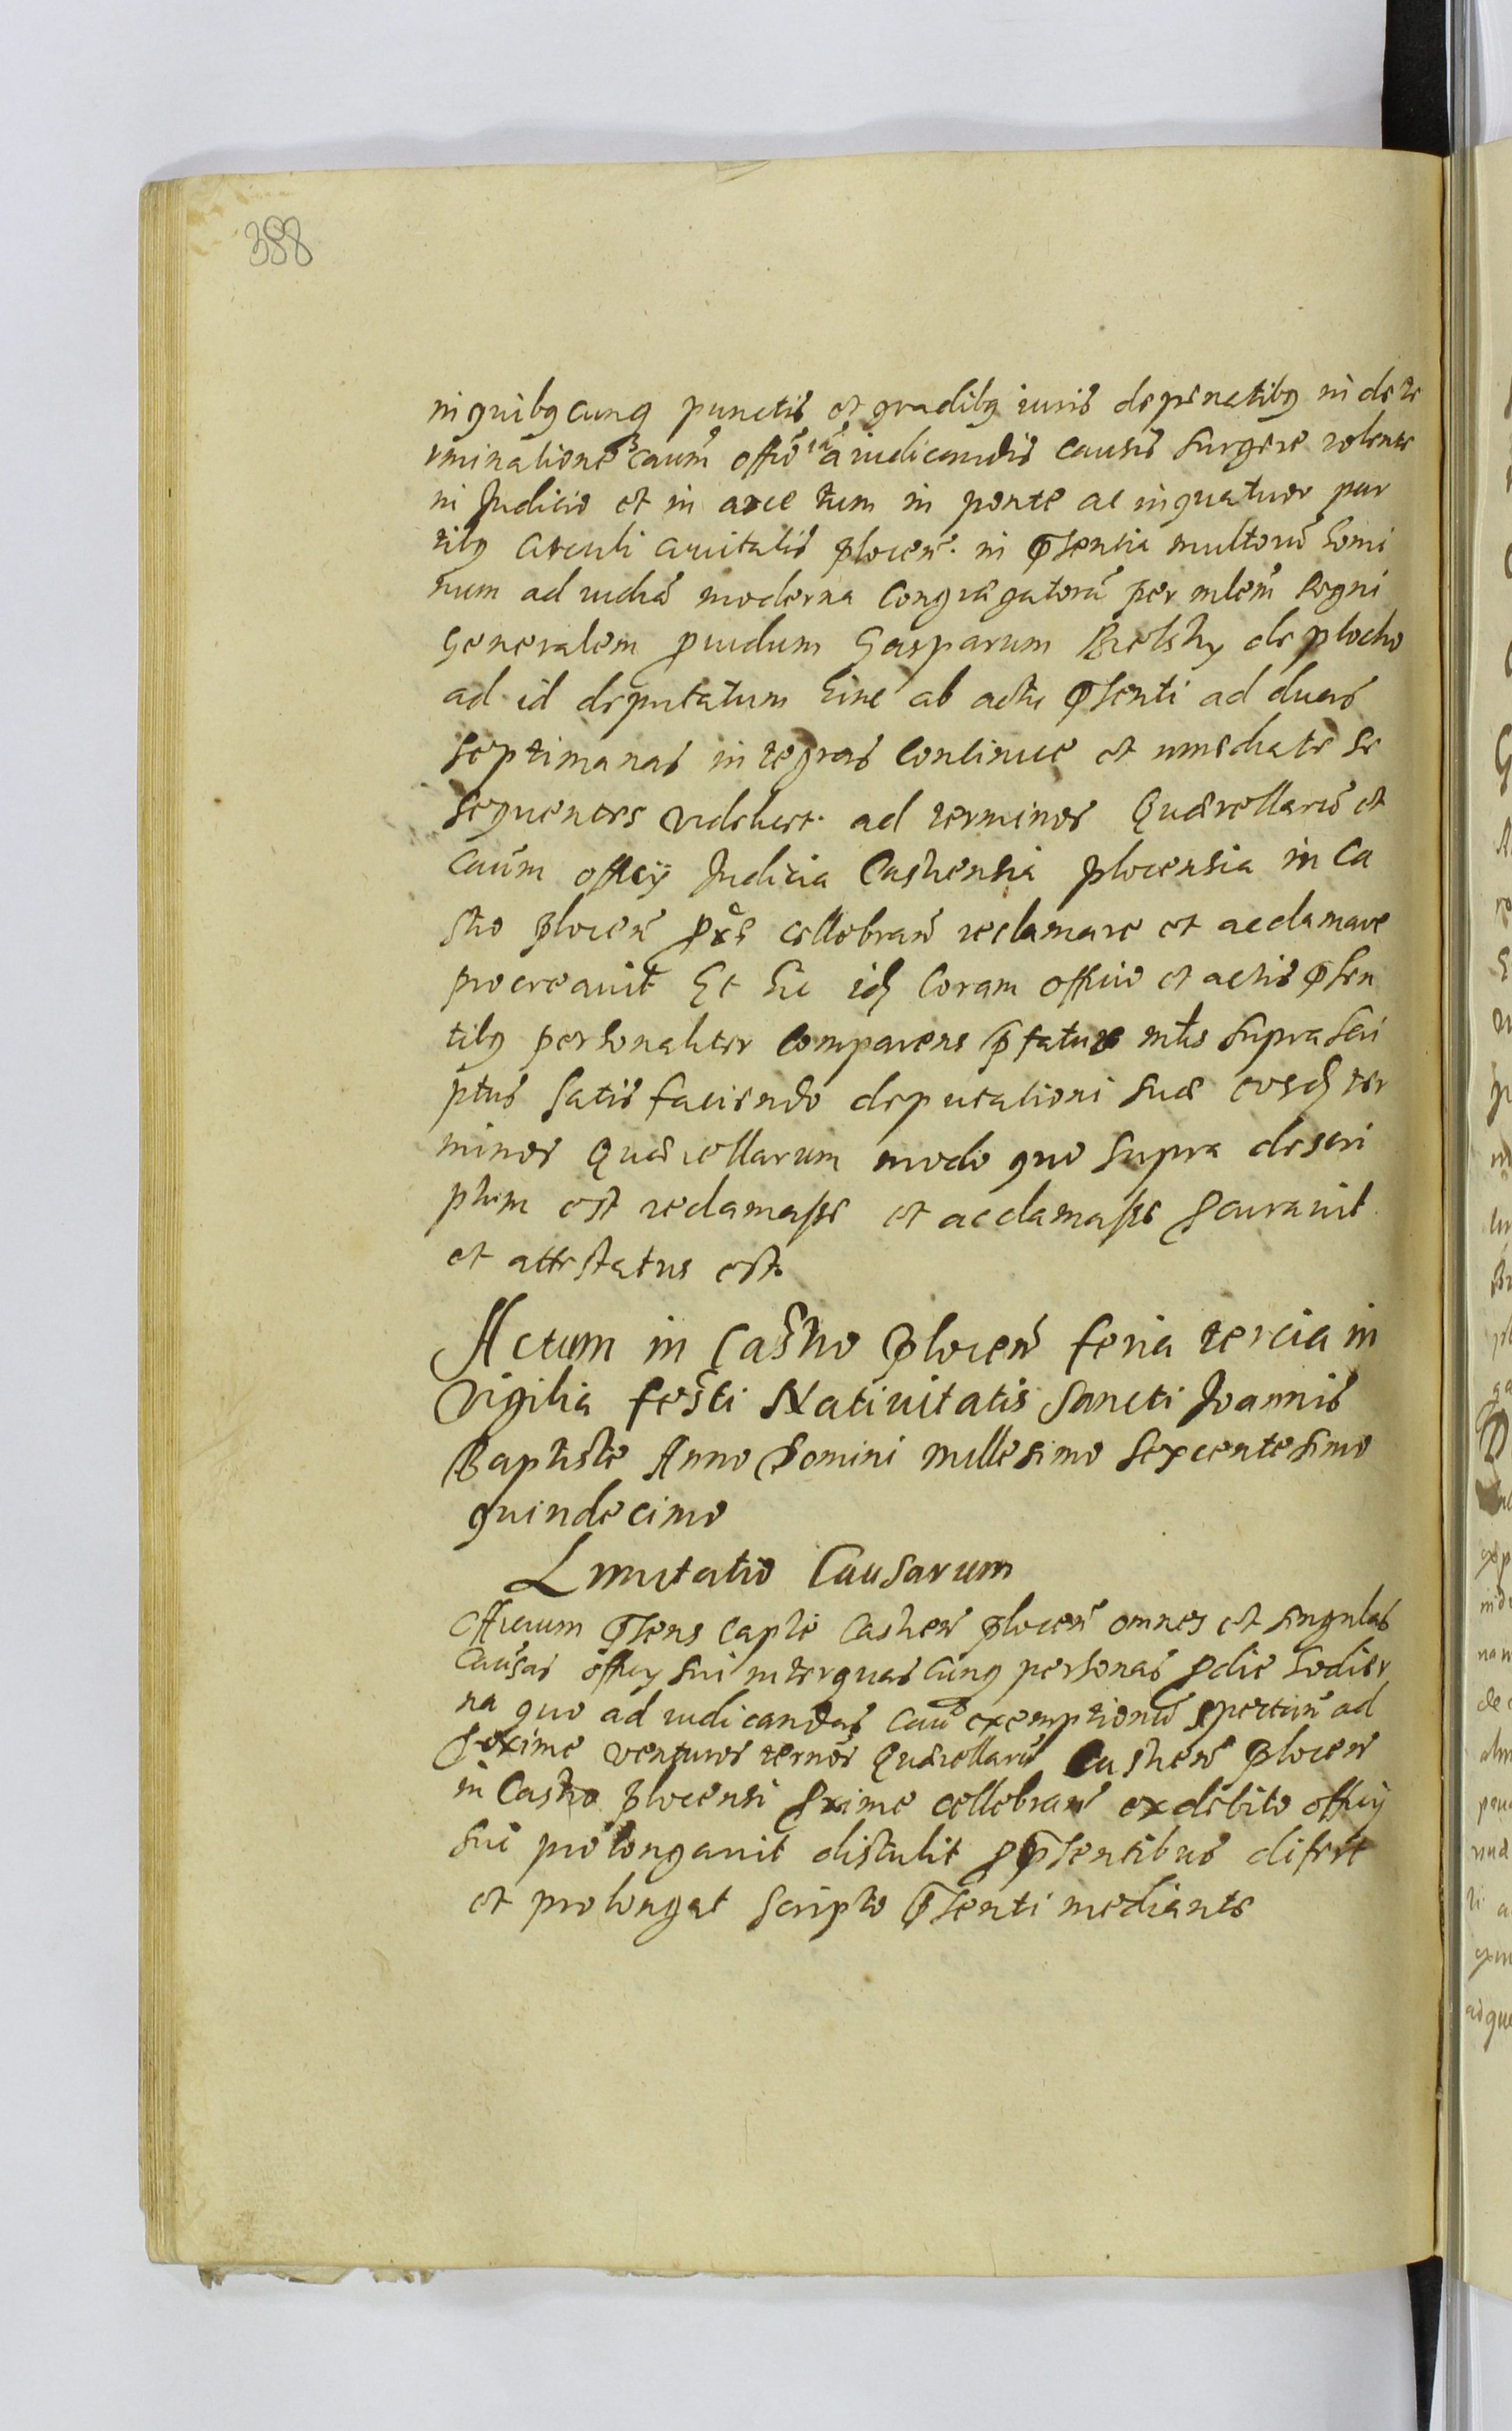 388
in quibuscunq punctis et gradibq iuris dependetibq in dete
rminationē caum̄ offıō a iudicandis causis surgere volente
in Judicio et in arce tum in ponte ac in quatuor par
tibq circuli civitatis plocen̄. in p̄sentia multorū homi
num ad iudiā moderna Congregatorū per mlem̄ Regni
Generalem prudum Gasparum Bielsky de plocko
ad id deputatum hinc ab actu p̄senti ad duas
septimanas integras Continue et immediate se
sequentes videlicet. ad terminos Quærellarū et
caum̄ officÿ Judicia Castrensia plocensia in Ca
stro plocen̄ pxē cellebran̄ reclamare et acclamare
procreavit Et hic idq Coram officio et actis p̄sen
tibq personaliter Comparens p̄fatus mlis suprascri
ptus satis faciendo deputationi suæ eosdq ter
minos Quærellarum modo quo supra descri
ptum est reclamasse et acclamasse pcuravit
et attestatus est.
Actum in Castro Plocen̄ feria tercia in
Vigilia festi Nativitatis Sancti Joannis
Baptiste Anno Domini millesimo sexcentesimo
quindecimo
Limitatio Causarum
Officium p̄sens Caple Castren̄ plocen̄ omnes et singulas
Causas officÿ sui inter quascunq personas pdie hodier
na quo ad iudicandas cau exemptionū spectan̄ ad
proxime venturos ternōs Quærellarū Castren̄ Plocen̄
in Castro plocensi pxime cellebran̄ ex debito officÿ
sui prolongavit distulit pp̄sentibus difert
et prolongat scripto p̄senti mediante